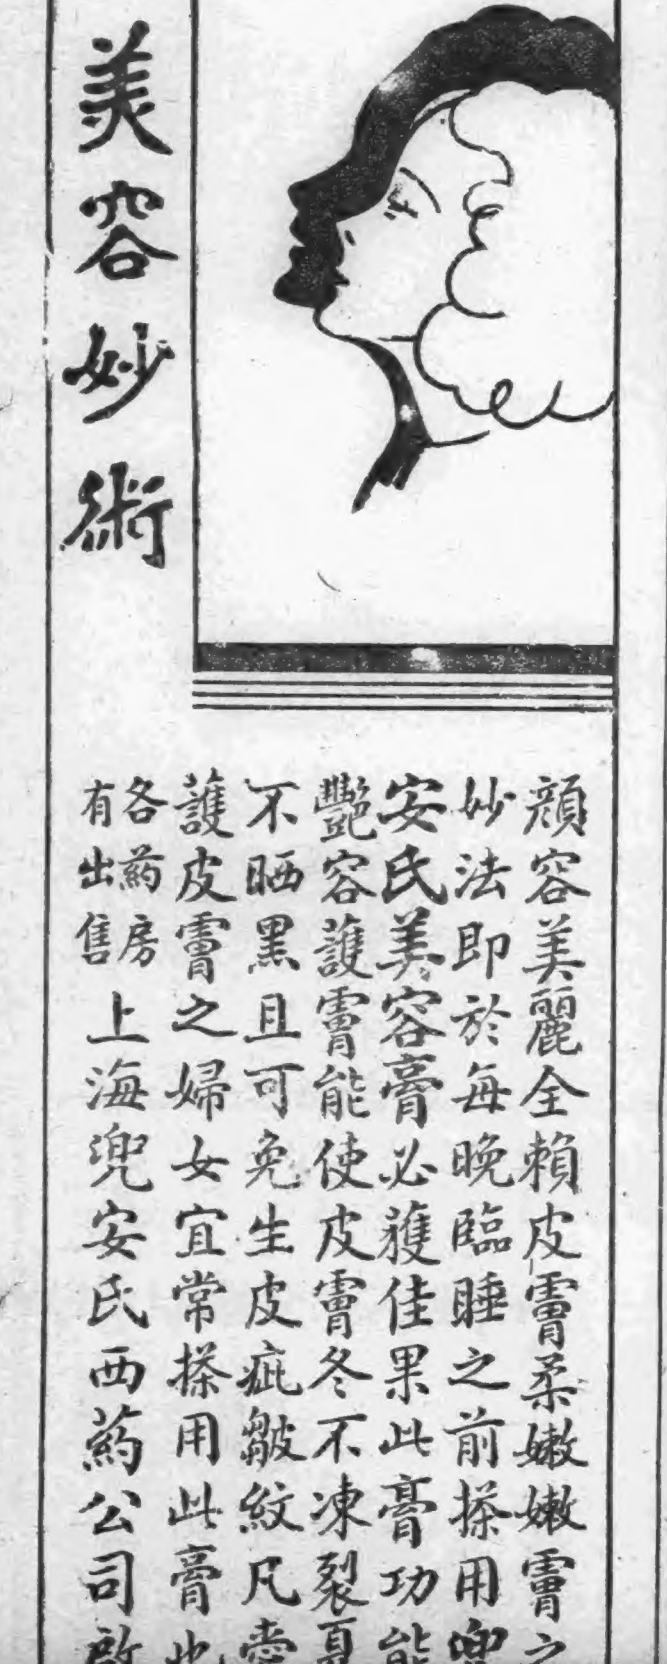 美容妙術
顏容美麗全賴皮膚柔嫩嫩膚之
妙法即於每晚臨睡之前搽用兜
安氏美容膏必獲佳果此膏功能
豔容護膚能使皮膚冬不凍裂夏
不晒黑且可免生皮疵皺紋凡愛
護皮膚之婦女宜常搽用此膏也
各葯房
有出售
上海兜安氏西葯公司啟